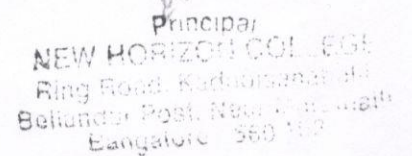 Principal
NEW HORIZON COLLEGE
Ring Road, Kadubisanahalli
Bellandur Post, Near Marathalli
Bangalore 560